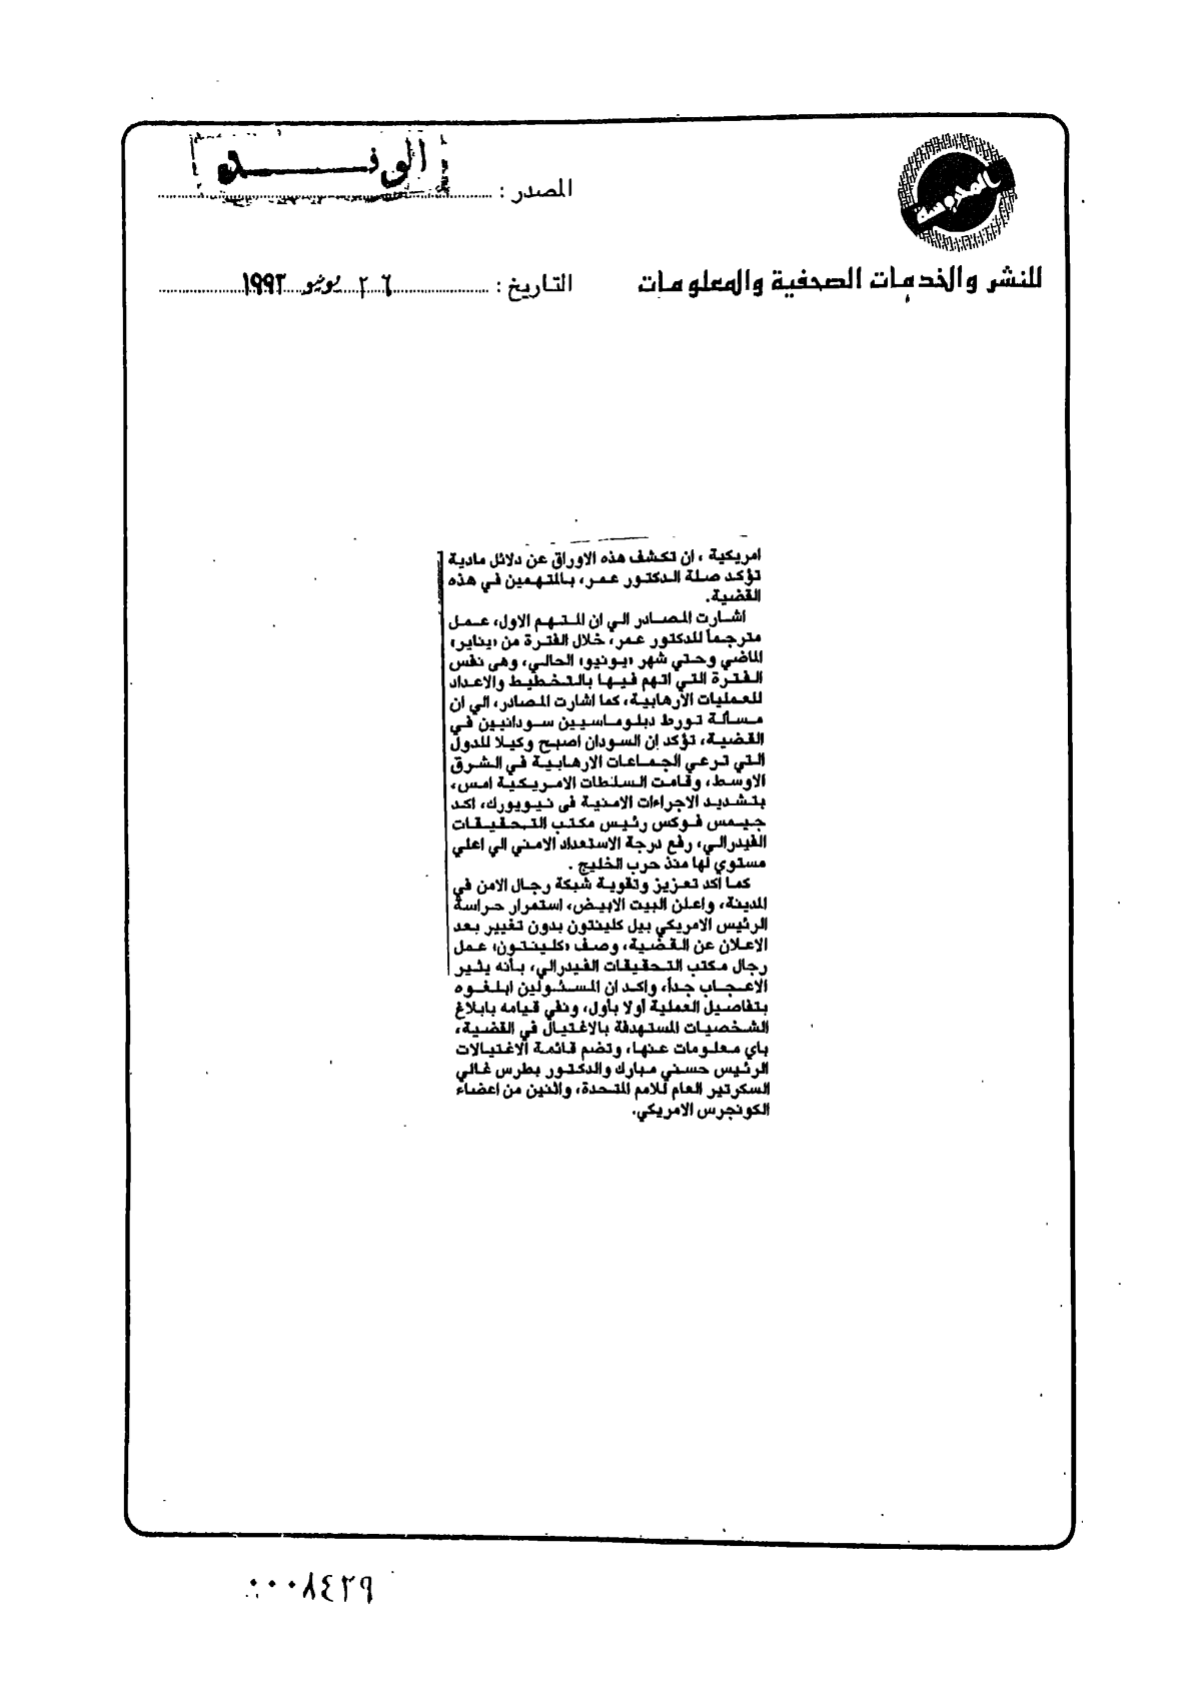 المحروسة
للنشر والخدمات الصحفية والمعلومات
المصدر : الوفد
التاريخ : ٢٦ يونيو ١٩٩٣
امريكية ، ان تكشف هذه الاوراق عن دلائل مادية
تؤكد صلة الدكتور عمر، بالمتهمين في هذه
القضية.
اشارت المصادر الي ان المتهم الاول، عمل
مترجماً للدكتور عمر، خلال الفترة من «يناير»
الماضي وحتي شهر «يونيو» الحالي، وهي نفس
الفترة التي اتهم فيها بالتخطيط والاعداد
للعمليات الارهابية، كما اشارت المصادر، الي ان
مسألة تورط دبلوماسيين سودانيين في
القضية، تؤكد إن السودان اصبح وكيلا للدول
التي ترعي الجماعات الارهابية في الشرق
الاوسط، وقامت السلطات الامريكية امس،
بتشديد الاجراءات الامنية فى نيويورك، اكد
جيمس فوكس رئيس مكتب التحقيقات
الفيدرالي، رفع درجة الاستعداد الامني الي اعلي
مستوي لها منذ حرب الخليج .
كما اكد تعزيز وتقوية شبكة رجال الامن في
المدينة، واعلن البيت الابيض، استمرار حراسة
الرئيس الامريكي بيل كلينتون بدون تغيير بعد
الاعلان عن القضية، وصف «كلينتون» عمل
رجال مكتب التحقيقات الفيدرالي، بأنه يثير
الاعجاب جداً، واكد ان المسئولين ابلغوه
بتفاصيل العملية أولا بأول، ونفي قيامه بابلاغ
الشخصيات المستهدفة بالاغتيال في القضية،
باي معلومات عنها، وتضم قائمة الاغتيالات
الرئيس حسني مبارك والدكتور بطرس غالي
السكرتير العام للامم المتحدة، واثنين من اعضاء
الكونجرس الامريكي.